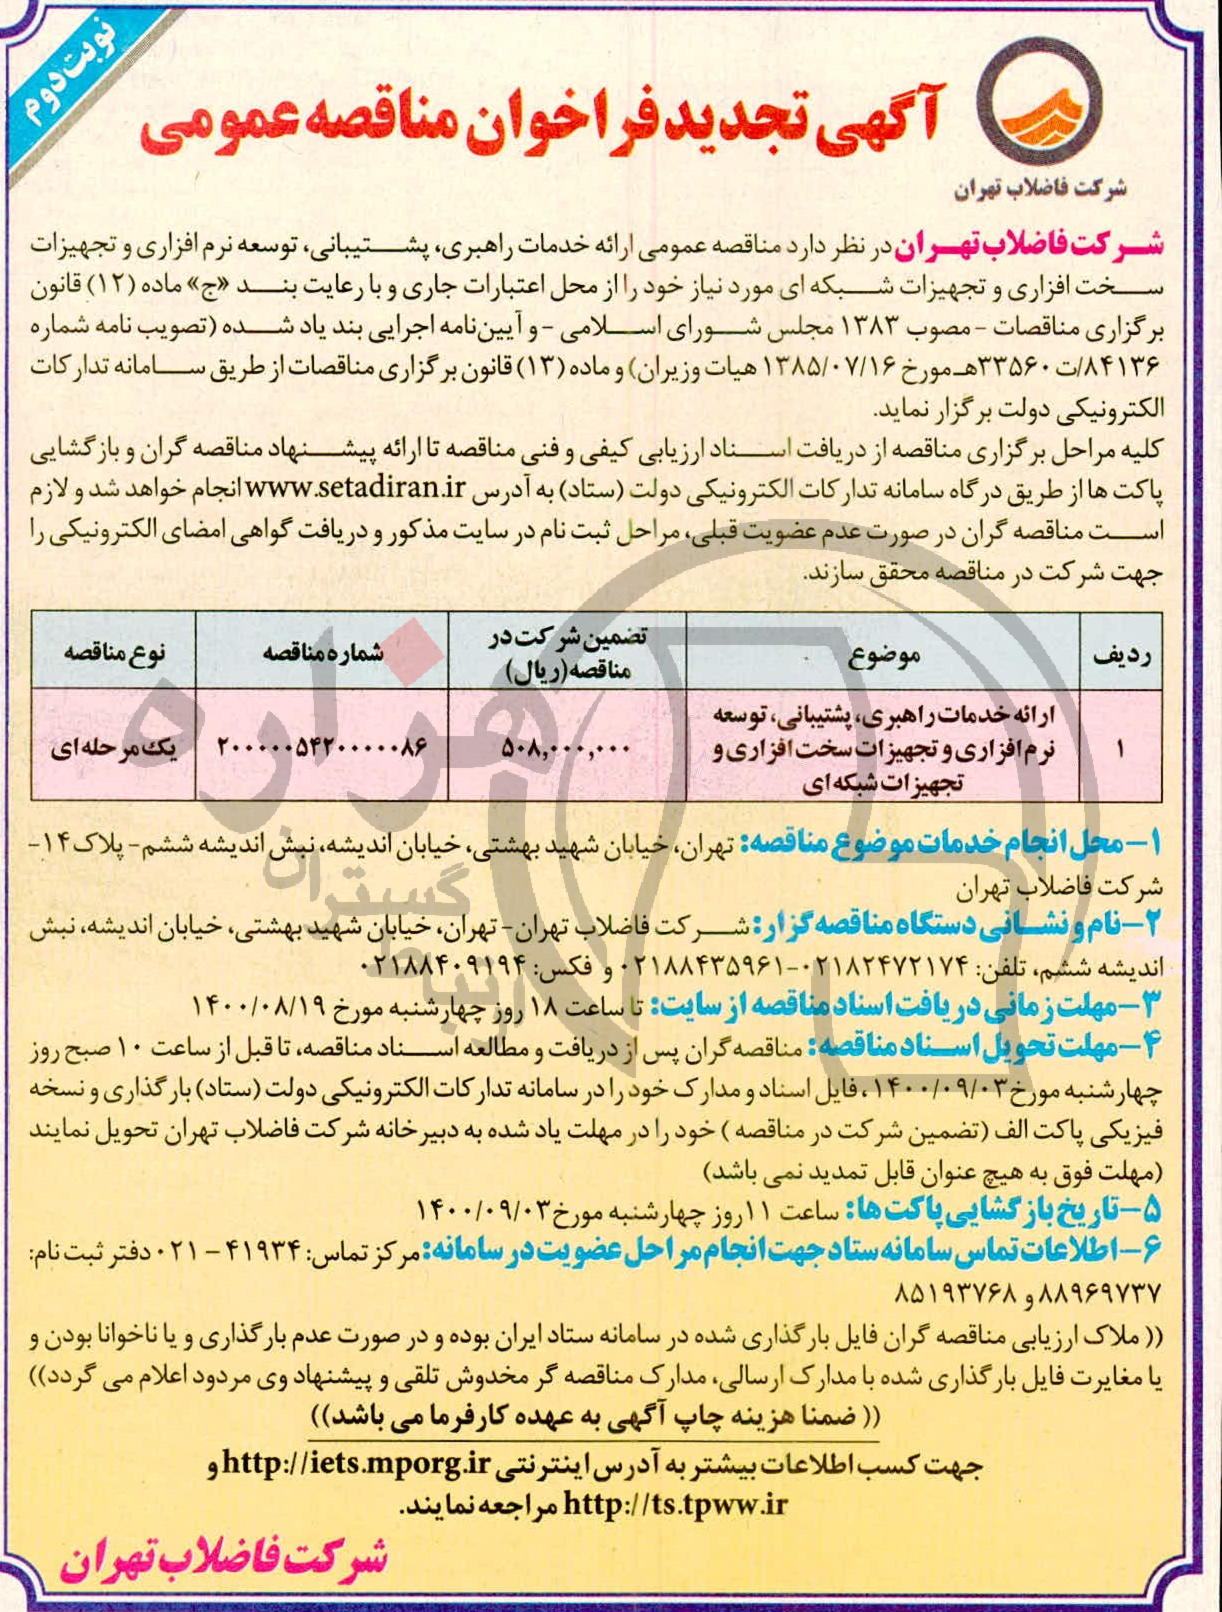 نوبت دوم
آگهی تجدید فراخوان مناقصه عمومی
شرکت فاضلاب تهران
شرکت فاضلاب تهران در نظر دارد مناقصه عمومی ارائه خدمات راهبری، پشتیبانی، توسعه نرم افزاری و تجهیزات
سخت افزاری و تجهیزات شبکه ای مورد نیاز خود را از محل اعتبارات جاری و با رعایت بند «ج» ماده (۱۲) قانون
برگزاری مناقصات - مصوب ۱۳۸۳ مجلس شورای اسلامی - و آیین‌نامه اجرایی بند یاد شده (تصویب نامه شماره
۸۴۱۳۶/ت۳۳۵۶۰هـ مورخ ۱۳۸۵/۰۷/۱۶ هیات وزیران) و ماده (۱۳) قانون برگزاری مناقصات از طریق سامانه تدارکات
الکترونیکی دولت برگزار نماید.
کلیه مراحل برگزاری مناقصه از دریافت اسناد ارزیابی کیفی و فنی مناقصه تا ارائه پیشنهاد مناقصه گران و بازگشایی
پاکت ها از طریق درگاه سامانه تدارکات الکترونیکی دولت (ستاد) به آدرس www.setadiran.ir انجام خواهد شد و لازم
است مناقصه گران در صورت عدم عضویت قبلی، مراحل ثبت نام در سایت مذکور و دریافت گواهی امضای الکترونیکی را
جهت شرکت در مناقصه محقق سازند.
ردیف موضوع تضمین شرکت در مناقصه(ریال) شماره مناقصه نوع مناقصه
۱ ارائه خدمات راهبری، پشتیبانی، توسعه نرم افزاری و تجهیزات سخت افزاری و تجهیزات شبکه ای ۵۰۸,۰۰۰,۰۰۰ ۲۰۰۰۰۰۵۴۲۰۰۰۰۰۸۶ یک مرحله ای
۱- محل انجام خدمات موضوع مناقصه: تهران، خیابان شهید بهشتی، خیابان اندیشه، نبش اندیشه ششم- پلاک ۱۴-
شرکت فاضلاب تهران
۲- نام و نشانی دستگاه مناقصه گزار: شرکت فاضلاب تهران - تهران، خیابان شهید بهشتی، خیابان اندیشه، نبش
اندیشه ششم، تلفن: ۰۲۱۸۲۴۷۲۱۷۴-۰۲۱۸۸۴۳۵۹۶۱ و فکس: ۰۲۱۸۸۴۰۹۱۹۴
۳- مهلت زمانی دریافت اسناد مناقصه از سایت: تا ساعت ۱۸ روز چهارشنبه مورخ ۱۴۰۰/۰۸/۱۹
۴- مهلت تحویل اسناد مناقصه: مناقصه گران پس از دریافت و مطالعه اسناد مناقصه، تا قبل از ساعت ۱۰ صبح روز
چهارشنبه مورخ ۱۴۰۰/۰۹/۰۳، فایل اسناد و مدارک خود را در سامانه تدارکات الکترونیکی دولت (ستاد) بارگذاری و نسخه
فیزیکی پاکت الف (تضمین شرکت در مناقصه) خود را در مهلت یاد شده به دبیرخانه شرکت فاضلاب تهران تحویل نمایند
(مهلت فوق به هیچ عنوان قابل تمدید نمی باشد)
۵- تاریخ بازگشایی پاکت ها: ساعت ۱۱ روز چهارشنبه مورخ ۱۴۰۰/۰۹/۰۳
۶- اطلاعات تماس سامانه ستاد جهت انجام مراحل عضویت در سامانه: مرکز تماس: ۴۱۹۳۴ - ۰۲۱ دفتر ثبت نام:
۸۸۹۶۹۷۳۷ و ۸۵۱۹۳۷۶۸
(( ملاک ارزیابی مناقصه گران فایل بارگذاری شده در سامانه ستاد ایران بوده و در صورت عدم بارگذاری و یا ناخوانا بودن و
یا مغایرت فایل بارگذاری شده با مدارک ارسالی، مدارک مناقصه گر مخدوش تلقی و پیشنهاد وی مردود اعلام می گردد))
(( ضمنا هزینه چاپ آگهی به عهده کارفرما می باشد))
جهت کسب اطلاعات بیشتر به آدرس اینترنتی http://iets.mporg.ir و
http://ts.tpww.ir مراجعه نمایند.
شرکت فاضلاب تهران
هزاره
گستران